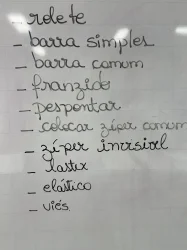 - rolete
- barra simples
- barra comum
- franzido
- pespontar
- colocar zíper comum
- zíper invisível
- lastex
- elástico
- viés